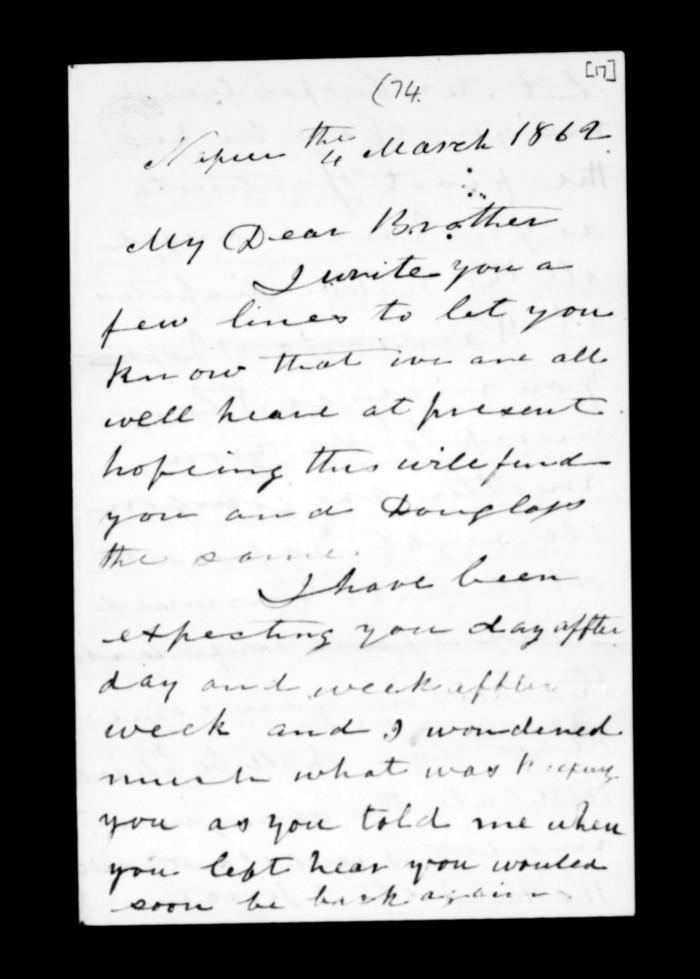 [17]
(74.
Napier the 4 March 1862.
My Dear Brother
I write you a
few lines to let you
know that we are all
well heare at present
hopeing this will find
you and Douglass
the same.
I have been
expecting you day affter
day and week affter
week and I wondered
much what was keeping
you as you told me when
you left hear you wouled
soon be back again